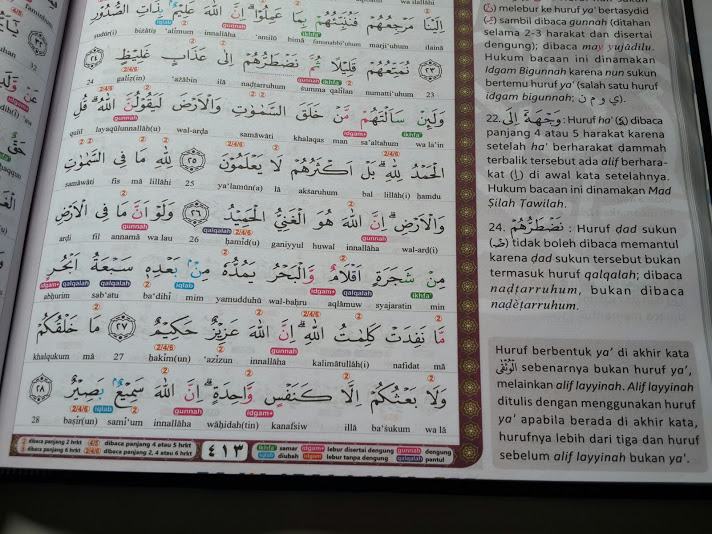 اِلَيْنَا مَرْجِعُهُمْ فَنُنَبِّئُهُمْ بِمَا عَمِلُوْاۗ اِنَّ اللّٰهَ عَلِيْمٌۢ بِذَاتِ الصُّدُوْرِ
ṣudūr(i) biżātiṣ ‘alīmum innallāha ‘amilū bimā fanunabbi'uhum marji‘uhum ilainā
٢٣ نُمَتِّعُهُمْ قَلِيْلًا ثُمَّ نَضْطَرُّهُمْ اِلٰى عَذَابٍ غَلِيْظٍ ٢٤
24 galīẓ(in) ‘ażābin ilā naḍṭarruhum ṡumma qalīlan numatti‘uhum 23
وَلَىِٕنْ سَاَلْتَهُمْ مَّنْ خَلَقَ السَّمٰوٰتِ وَالْاَرْضَ لَيَقُوْلُنَّ اللّٰهُ ۗ قُلِ
qulil layaqūlunnallāh(u) wal-arḍa samāwāti khalaqas man sa'altahum wa la'in
الْحَمْدُ لِلّٰهِ ۗ بَلْ اَكْثَرُهُمْ لَا يَعْلَمُوْنَ ٢٥ لِلّٰهِ مَا فِى السَّمٰوٰتِ
samāwāti fis mā lillāhi 25 ya‘lamūn(a) lā akṡaruhum bal lillāh(i) ḥamdu
وَالْاَرْضِ ۗ اِنَّ اللّٰهَ هُوَ الْغَنِيُّ الْحَمِيْدُ ٢٦ وَلَوْ اَنَّ مَا فِى الْاَرْضِ
arḍi fil annamā wa lau 26 ḥamīd(u) ganiyyul huwal innallāha wal-arḍ(i)
مِنْ شَجَرَةٍ اَقْلَامٌ وَّالْبَحْرُ يَمُدُّهٗ مِنْۢ بَعْدِهٖ سَبْعَةُ اَبْحُرٍ
abḥurim sab‘atu ba‘dihī mim yamudduhū wal-baḥru aqlāmuw syajaratin min
مَّا نَفِدَتْ كَلِمٰتُ اللّٰهِ ۗ اِنَّ اللّٰهَ عَزِيْزٌ حَكِيْمٌ ٢٧ مَا خَلْقُكُمْ
khalqukum mā 27 ḥakīm(un) ‘azīzun innallāha kalimātullāh(i) nafidat mā
وَلَا بَعْثُكُمْ اِلَّا كَنَفْسٍ وَّاحِدَةٍ ۗ اِنَّ اللّٰهَ سَمِيْعٌۢ بَصِيْرٌ ٢٨
28 baṣīr(un) samī‘um innallāha wāḥidah(tin) kanafsiw illā ba‘ṡukum wa lā
dibaca panjang 2 hrkt dibaca panjang 4 atau 5 hrkt
dibaca panjang 6 hrkt dibaca panjang 2, 4 atau 6 hrkt
٤١٣
ikhfa' samar idgam+ lebur disertai dengung gunnah dengung
iqlab diubah idgam lebur tanpa dengung qalqalah pantul
melebur ke huruf ya' bertasydid
sambil dibaca gunnah (ditahan
selama 2-3 harakat dan disertai
dengung); dibaca may yujādilu.
Hukum bacaan ini dinamakan
Idgam Bigunnah karena nun sukun
bertemu huruf ya' (salah satu huruf
idgam bigunnah: ي و م ن).
22. وَجْهَهٗٓ اِلَى : Huruf ha' (هٗ) dibaca
panjang 4 atau 5 harakat karena
setelah ha' berharakat dammah
terbalik tersebut ada alif berhara-
kat (اِ) di awal kata setelahnya.
Hukum bacaan ini dinamakan Mad
Ṣilah Tawilah.
24. نَضْطَرُّهُمْ : Huruf ḍad sukun
(ضْ) tidak boleh dibaca memantul
karena ḍad sukun tersebut bukan
termasuk huruf qalqalah; dibaca
naḍṭarruhum, bukan dibaca
naḍèṭarruhum.
Huruf berbentuk ya' di akhir kata
الْوُثْقٰى sebenarnya bukan huruf ya',
melainkan alif layyinah. Alif layyinah
ditulis dengan menggunakan huruf
ya' apabila berada di akhir kata,
hurufnya lebih dari tiga dan huruf
sebelum alif layyinah bukan ya'.